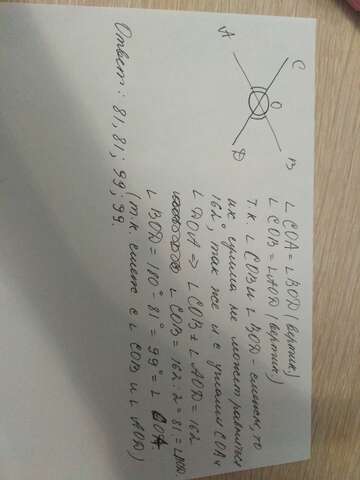 A
C
O
D
B
∠ COA = ∠ BOD (вертик)
∠ COB = ∠ AOD (вертик)
т.к. ∠ COB и ∠ BOD - смежн, то
их сумма не может равняться
162°, так же и с углами COA и
∠ DOA ⇒ ∠ COB + ∠ AOD = 162
∠ COB = 162 : 2 = 81 =
∠ BOD = 180° - 81° = 99° = ∠ COA.
(т.к. смежн с ∠ COB и ∠ AOD)
Ответ: 81, 81; 99; 99.